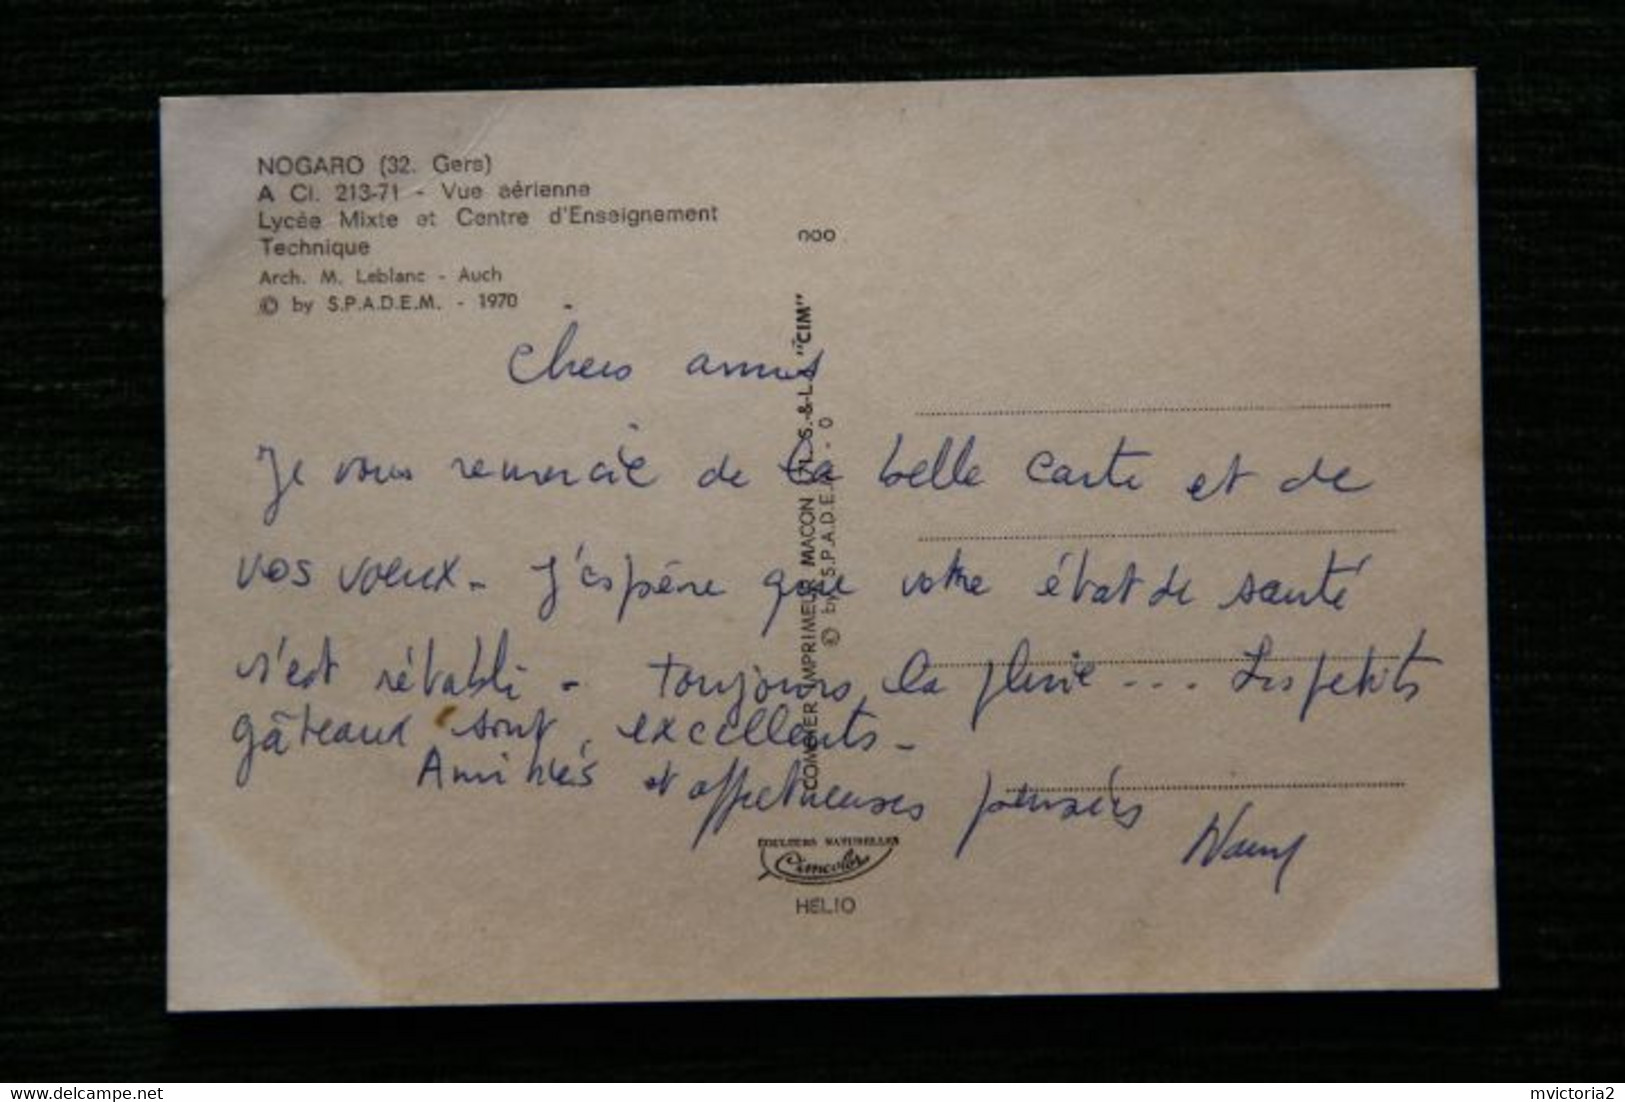 NOGARO (32. Gers)
A Cl. 213-71 - Vue aérienne
Lycée Mixte et Centre d'Enseignement
Technique
Arch. M. Leblanc - Auch
© by S.P.A.D.E.M. - 1970
noo
COMBIER IMPRIMEUR MACON (71. S.-&-L.) "CIM"
© by S.P.A.D.E.M. - 0
Chers amis
Je vous remercie de la belle carte et de
vos voeux - J'espère que votre état de santé
s'est rétabli - Toujours la pluie ... Les petits
gâteaux sont excellents -
Amitiés et affectueuses pensées
COULEURS NATURELLES
Cimcolor
HELIO
www.delcampe.net
mvictoria2